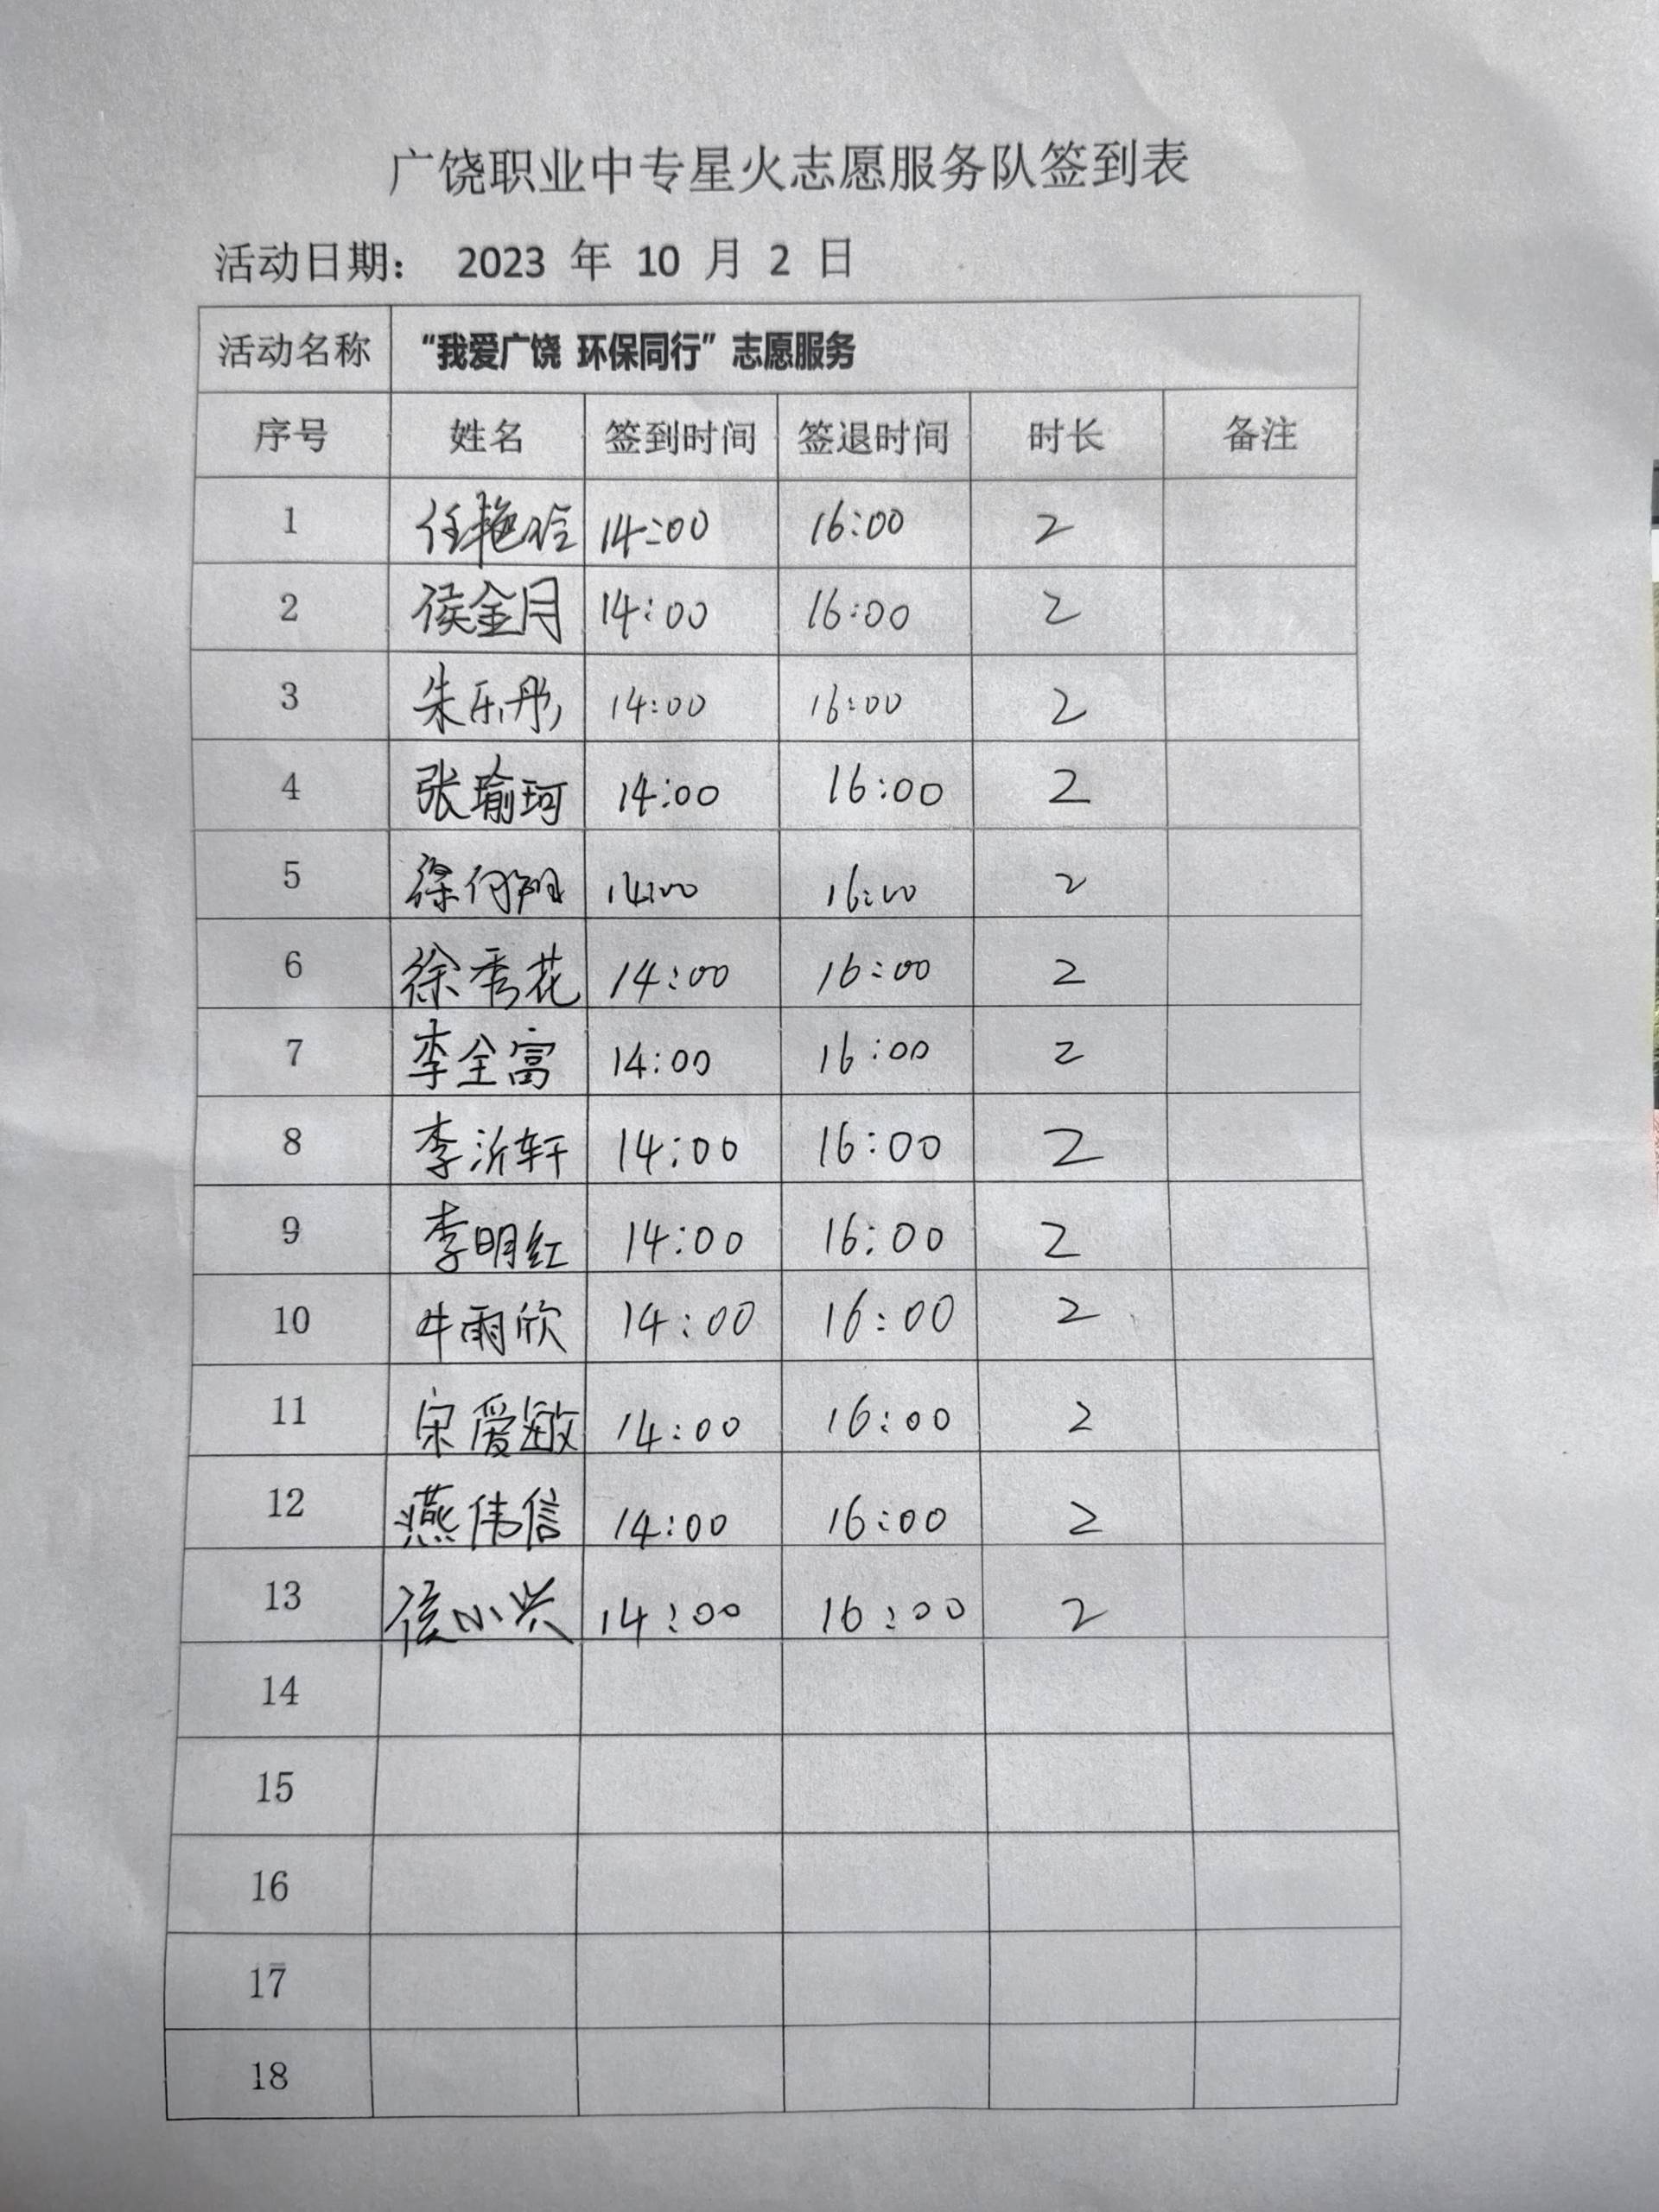 广饶职业中专星火志愿服务队签到表
活动日期： 2023 年 10 月 2 日
活动名称 “我爱广饶 环保同行”志愿服务
序号 姓名 签到时间 签退时间 时长 备注
1 任艳 14:00 16:00 2
2 侯金月 14:00 16:00 2
3 朱乐彤 14:00 16:00 2
4 张瑜珂 14:00 16:00 2
5 14:00 16:00 2
6 徐秀花 14:00 16:00 2
7 李全富 14:00 16:00 2
8 李沂轩 14:00 16:00 2
9 李明红 14:00 16:00 2
10 牛雨欣 14:00 16:00 2
11 宋爱敏 14:00 16:00 2
12 燕伟信 14:00 16:00 2
13 小兴 14:00 16:00 2
14
15
16
17
18